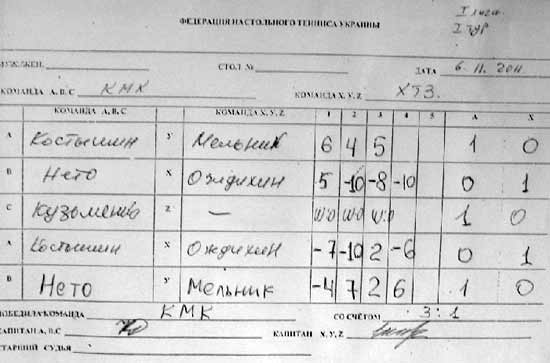 ФЕДЕРАЦИЯ НАСТОЛЬНОГО ТЕННИСА УКРАИНЫ
I лига
I ТУР
МУЖ./ЖЕН. СТОЛ № ДАТА 6. 11. 2011
КОМАНДА А, В, С КМК КОМАНДА X, Y, Z ХТЗ.
КОМАНДА А, В, С КОМАНДА X, Y, Z 1 2 3 4 5 А X
А Костышин Y Мельник 6 4 5 1 0
В Нето X Ождихин 5 -10 -8 -10 0 1
С Кузьменко Z — w:o w:o w:o 1 0
А Костышин X Ождихин -7 -10 2 -6 0 1
В Нето Y Мельник -4 7 2 6 1 0
ПОБЕДИЛА КОМАНДА КМК СО СЧЁТОМ 3:1
КАПИТАН А, В, С КАПИТАН X, Y, Z
СТАРШИЙ СУДЬЯ